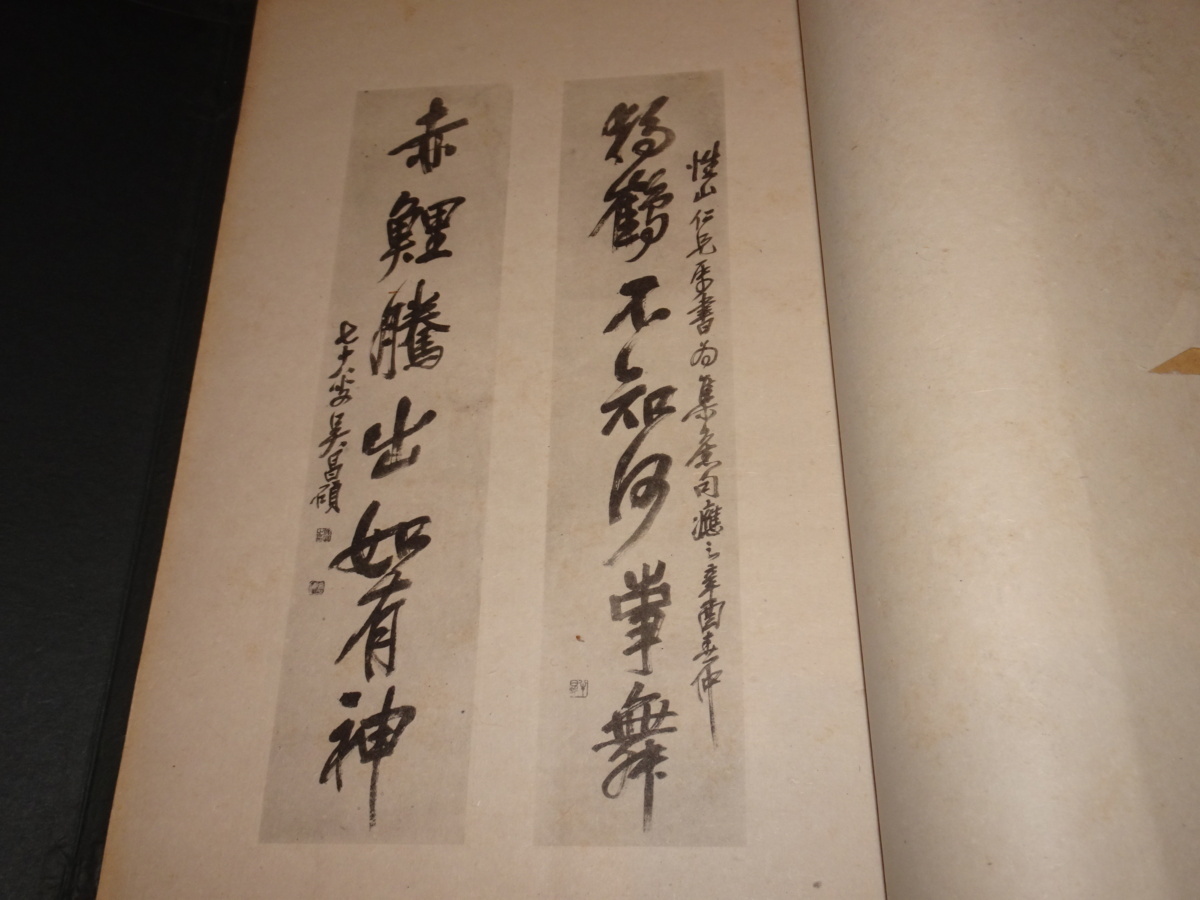 性山仁兄屬書為集句應之辛酉春仲
獨鶴不知何事舞
赤鯉騰出如有神
七十八叟吳昌碩